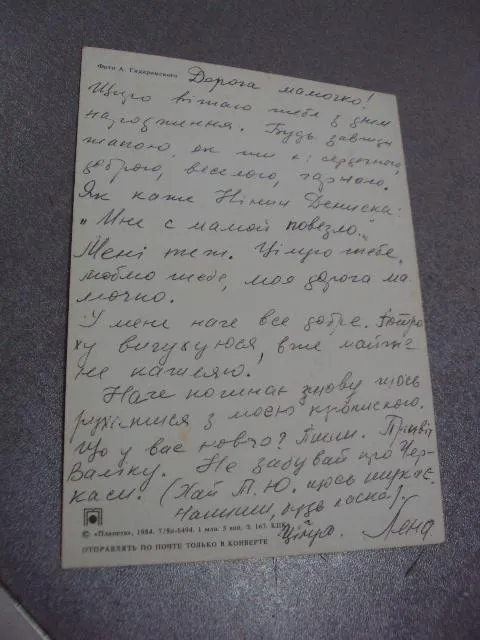 Фото А. Гидеримского
Дорога мамочко!
Щиро вітаю тебе з днем
народження. Будь завжди
такою, як ти є: сердечною,
доброю, веселою, гарною.
Як каже Нінин Дениска:
„Мне с мамой повезло."
Мені теж. Цілую тебе,
люблю тебе, моя дорога ма-
мочко.
У мене наче все добре. Потро-
ху вичухуюся, вже майже
не кашляю.
Наче починає знову щось
рухатися з моєю пропискою.
Що у вас нового? Пиши. Привіт
Валіку. Не забувай про Чер-
каси. (Хай Т. Ю. щось шукає.
Напиши, будь ласка).
Цілую. Лена
© «Планета», 1984. 7/8е-6494. 1 млн. 5 коп. З. 163. КПК
ОТПРАВЛЯТЬ ПО ПОЧТЕ ТОЛЬКО В КОНВЕРТЕ